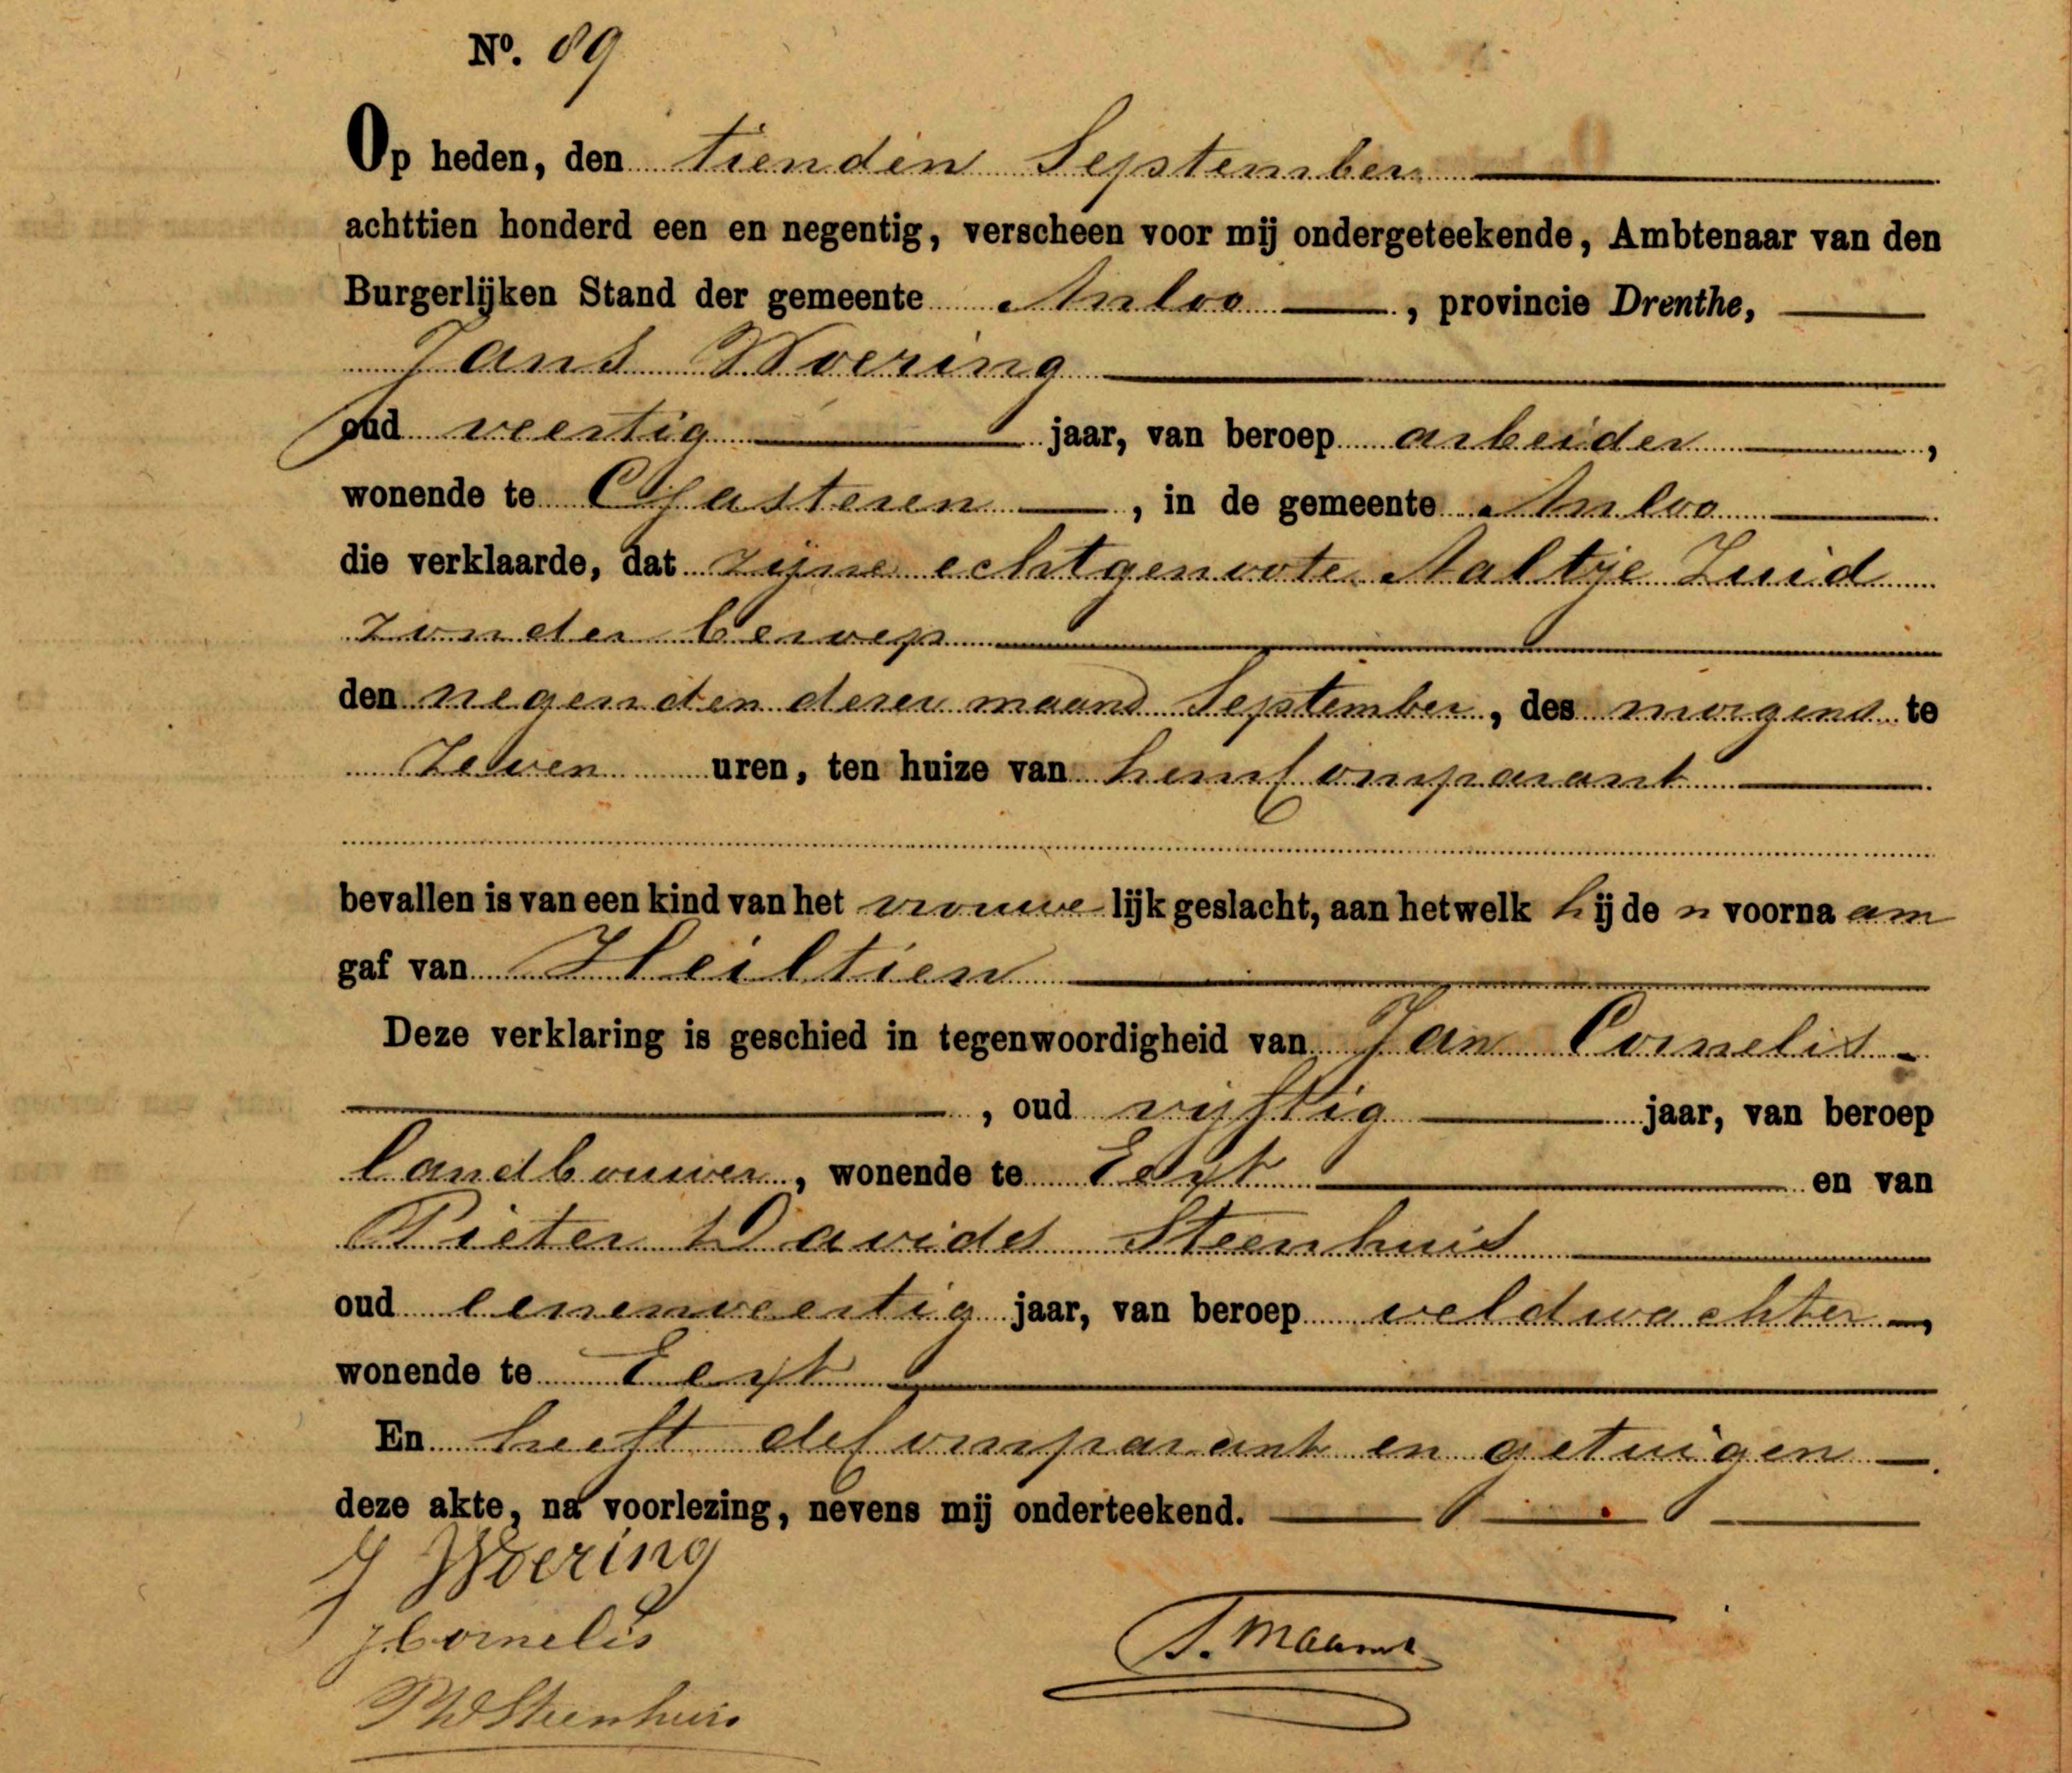 No. 89
Op heden, den tienden September
achttien honderd een en negentig, verscheen voor mij ondergeteekende, Ambtenaar van den
Burgerlijken Stand der gemeente Anloo, provincie Drenthe,
Jans Woering
oud veertig jaar, van beroep arbeider,
wonende te Gasteren, in de gemeente Anloo
die verklaarde, dat zijne echtgenoote Aaltje Zuid
zonder beroep
den negenden dezer maand September, des morgens te
Zeven uren, ten huize van hem Comparant
bevallen is van een kind van het vrouwelijk geslacht, aan hetwelk hij den voornaam
gaf van Heiltien
Deze verklaring is geschied in tegenwoordigheid van Jan Cornelis
, oud vijftig jaar, van beroep
landbouwer, wonende te Eext en van
Pieter Davids Steenhuis
oud eenenveertig jaar, van beroep veldwachter,
wonende te Eext
En heeft de Comparant en getuigen
deze akte, na voorlezing, nevens mij onderteekend.
J Woering
J. Cornelis
Steenhuis